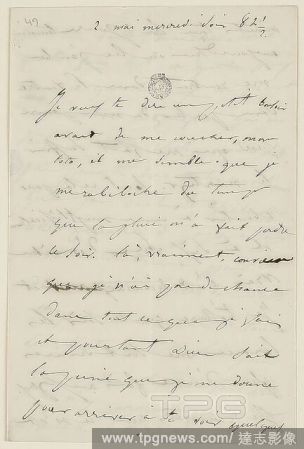 49
2 mai mercredi soir 8h ½
Je veux te dire un petit bonsoir
avant de me coucher, mon
toto, il me semble que je
me rabiboche du temps
que la pluie m'a fait perdre
ce soir. Là, vraiment,
je n'ai pas de chance
dans tout ce que je fais
et pourtant Dieu sait
la peine que je me donne
pour arriver à te voir quelques
TPG
www.tpgnews.com/達志影像